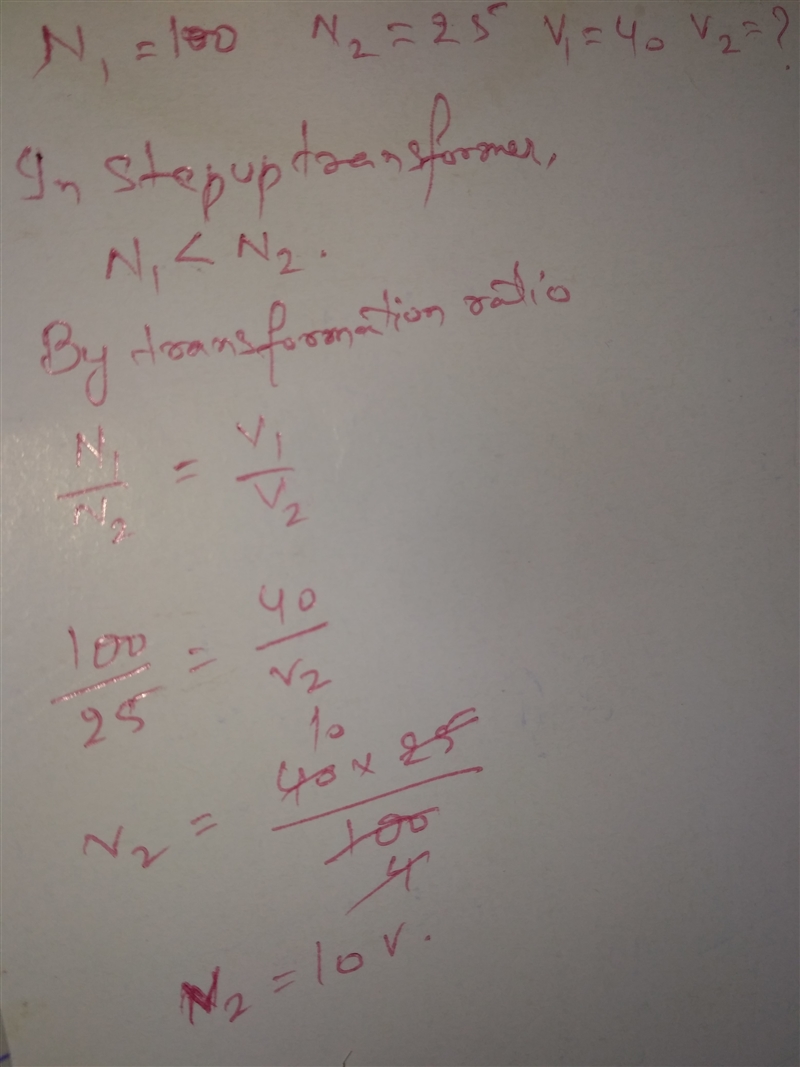 N₁ = 100 N₂ = 25 V₁ = 40 V₂ = ?
In Step up transformer,
N₁ < N₂.
By transformation ratio
N₁/N₂ = V₁/V₂
100/25 = 40/V₂
10
V₂ = 40 × 25/100
4
N₂ = 10 V.